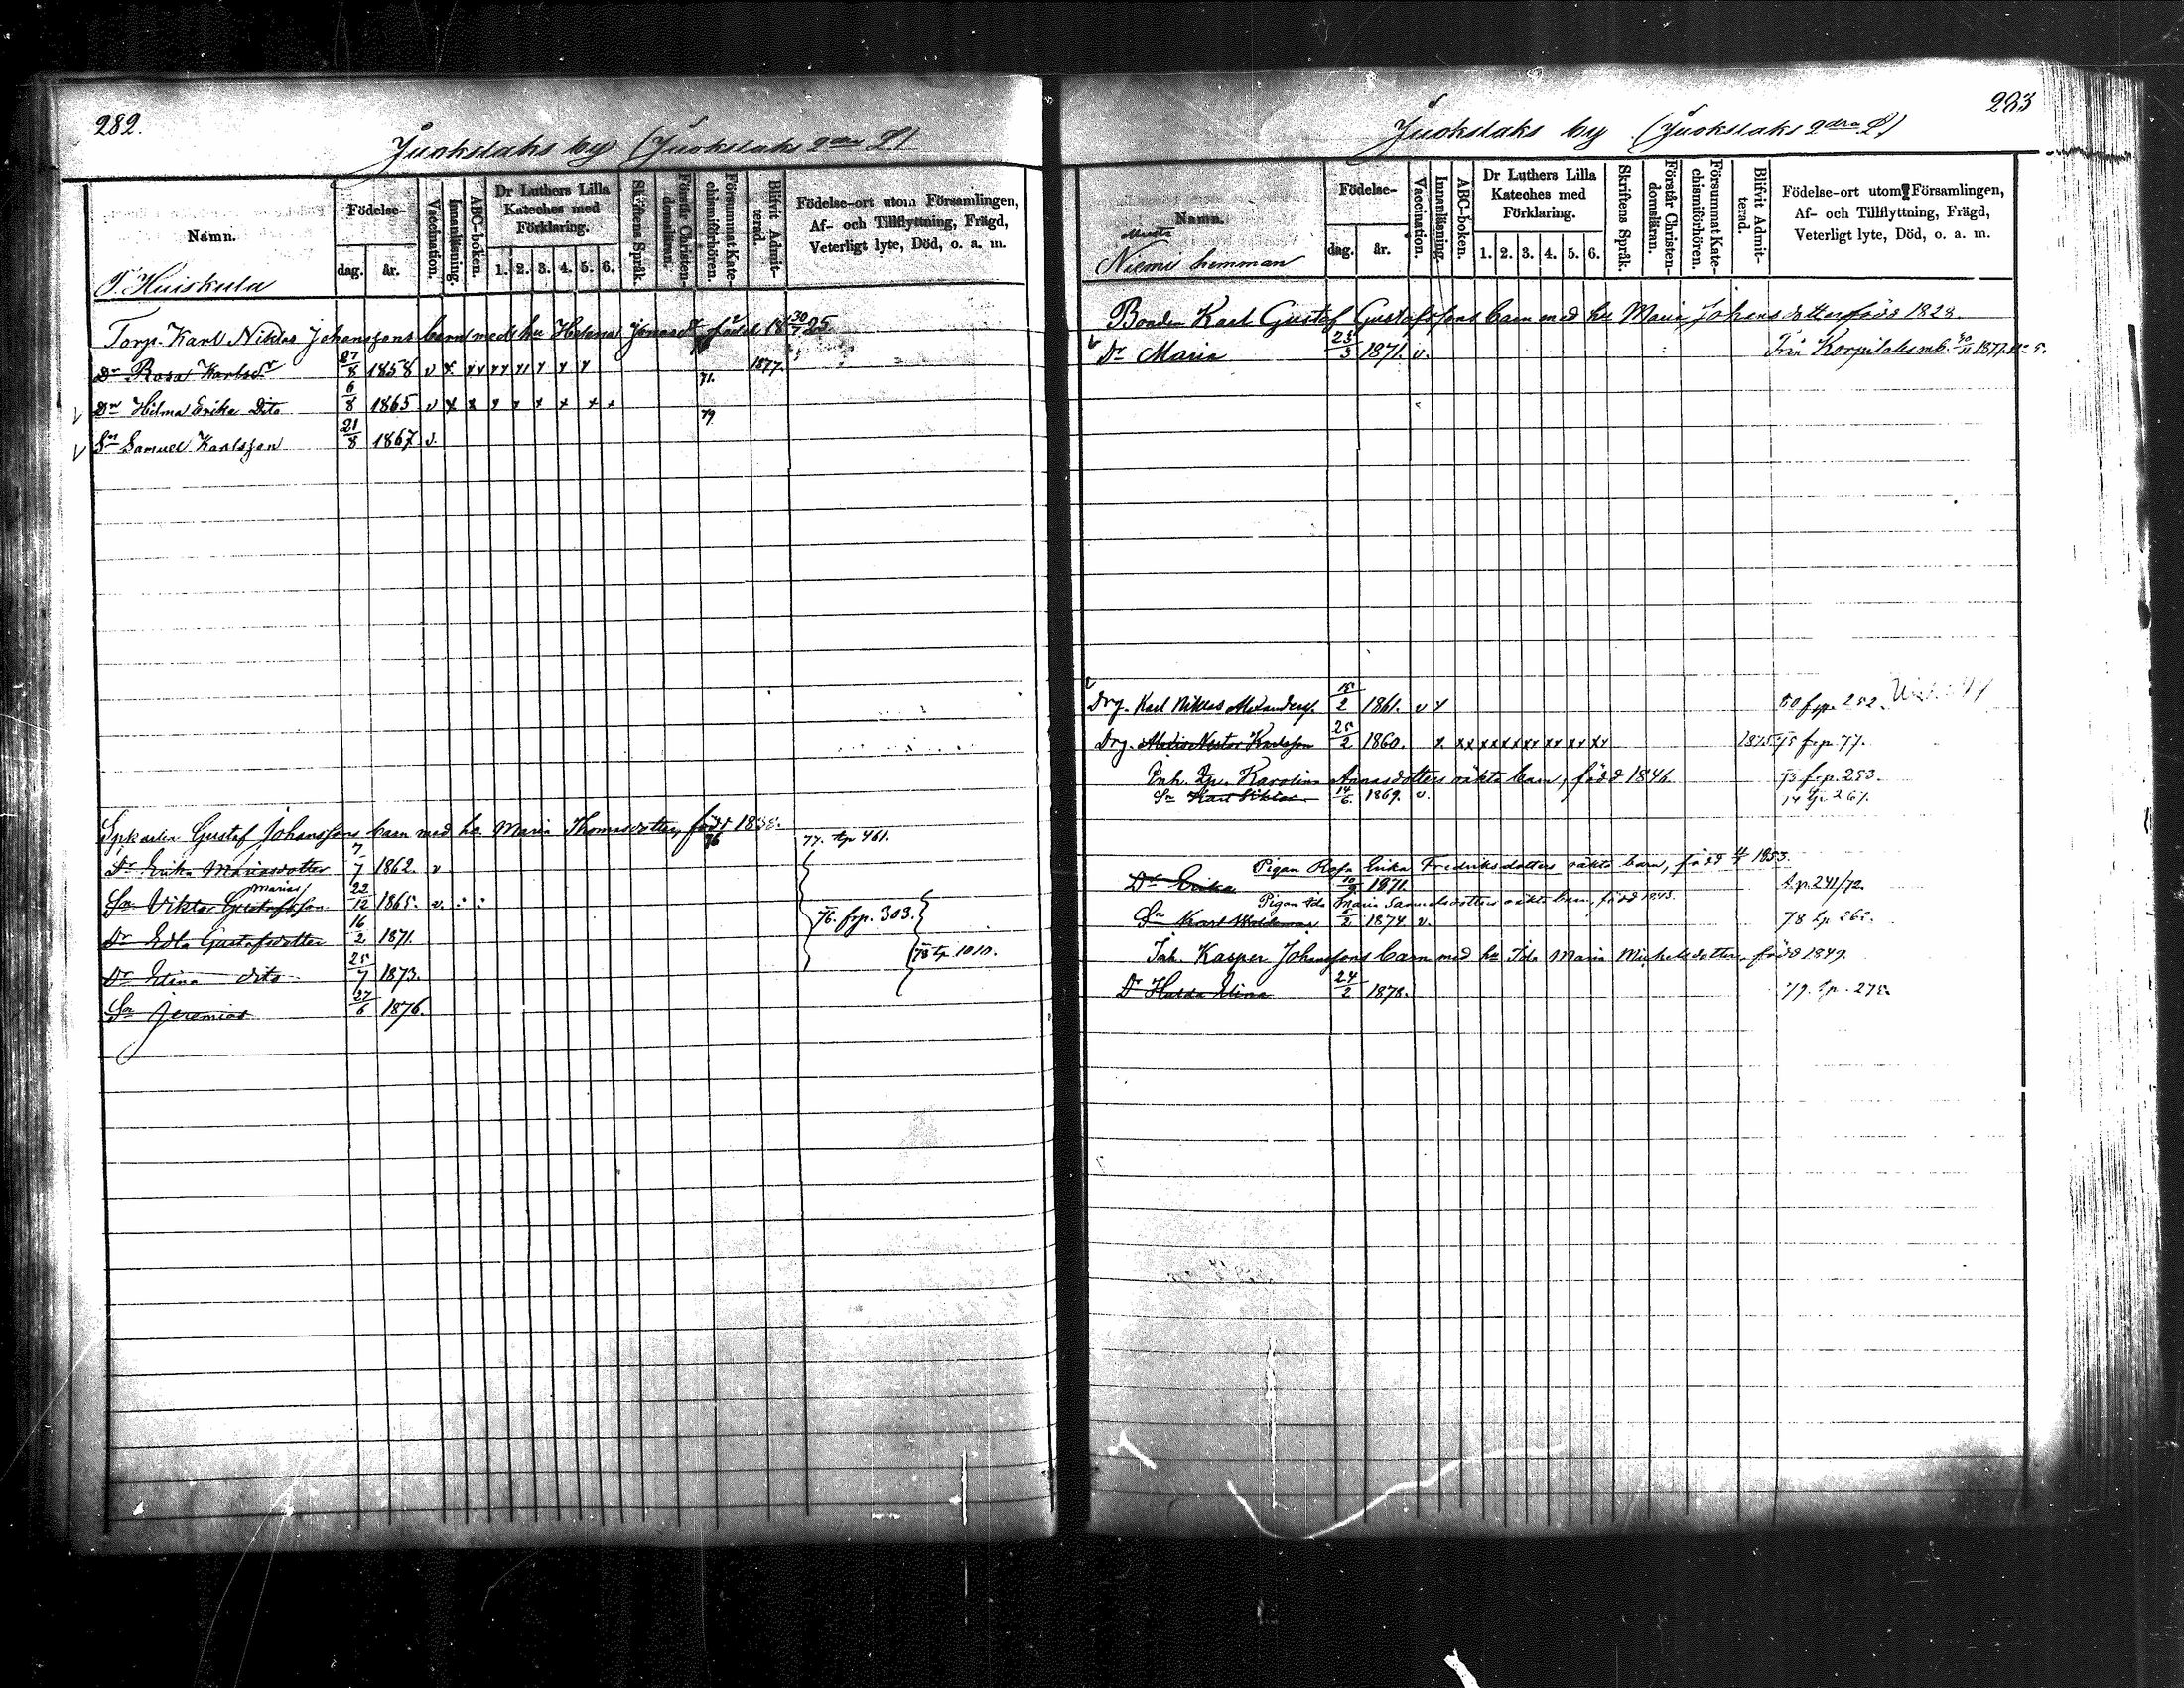 282.
Juokslaks by (Juokslaks 2dra L)
Namn.
Födelse-
dag.
år.
Vaccination.
Innanläsning.
ABC-boken.
Dr Luthers Lilla Kateches med Förklaring.
1. 2. 3. 4. 5. 6.
Skriftens Språk.
Förstår Christendomsläran.
Försummat Katechismiförhören.
Blifvit Admitterad.
Födelse-ort utom Församlingen,
Af- och Tillflyttning, Frägd,
Veterligt lyte, Död, o. a. m.
T. Huiskula
Torp. Karl Niklas Johanssons barn med hu Helena Jonasdr född 18 30/7 25
Dr Rosa Karlsdr 27/8 1858 v x xx xx x x x x 71. 1877.
v Dr Hilma Erika Dito 6/8 1865 v x x x x x x x x 79
v Sn Samuel Karlsson 21/8 1867 v.
Gustaf Johanssons barn med hu Maria Thomasdotter, född
76
77. tp 461.
Dr Erika Mariasdotter 7/7 1862. v
Marias
Sn Viktor Gustafsson 22/12 1865. v. : :
76. frp. 303.
Dr Edla Gustafsdotter 16/2 1871.
78 tp 1010.
Dr Elina dito 25/7 1873.
Sn Jeremias 27/6 1876.
283
Juokslaks by (Juokslaks 2dra L)
Namn.
Födelse-
dag.
år.
Vaccination.
Innanläsning.
ABC-boken.
Dr Luthers Lilla
Kateches med
Förklaring.
1. 2. 3. 4. 5. 6.
Skriftens Språk.
Förstår Christendomsläran.
Försummat Katechismiförhören.
Blifvit Admitterad.
Födelse-ort utom Församlingen,
Af- och Tillflyttning, Frägd,
Veterligt lyte, Död, o. a. m.
Niemi hemman
Bonden Karl Gustaf Gustafssons barn med hu Maria Johansdotter född 1828.
v Dr Maria 23/3 1871. v. Från Korpilaks mb. 30/11 1877. No 5.
Drg. Karl Niklas Alexanderss. 18/2 1861. v x 80 frp. 252.
Drg. Nestor Karlsson 25/2 1860. x xx xx xx xx xx xx 1875. 75 frp. 77.
Inh. Karolina Annasdotters oäkta barn, född 1846. 73 frp. 253.
Sn Karl Viktor 14/6. 1869. v. 74 tp 267.
Pigan Rosa Erika Fredriksdotters oäkta barn, född 1853.
Dr Erika 10/9 1871. tp. 241/72.
Pigan Ida Maria Samuelsdotters oäkta barn, född 1843.
Sn Karl Waldemar 5/2 1874. v. 78 tp 262.
Inh. Kasper Johanssons barn med hu Ida Maria Michelsdotter, född 1849.
Dr Hulda Elina 24/2 1878. 79. tp. 278.